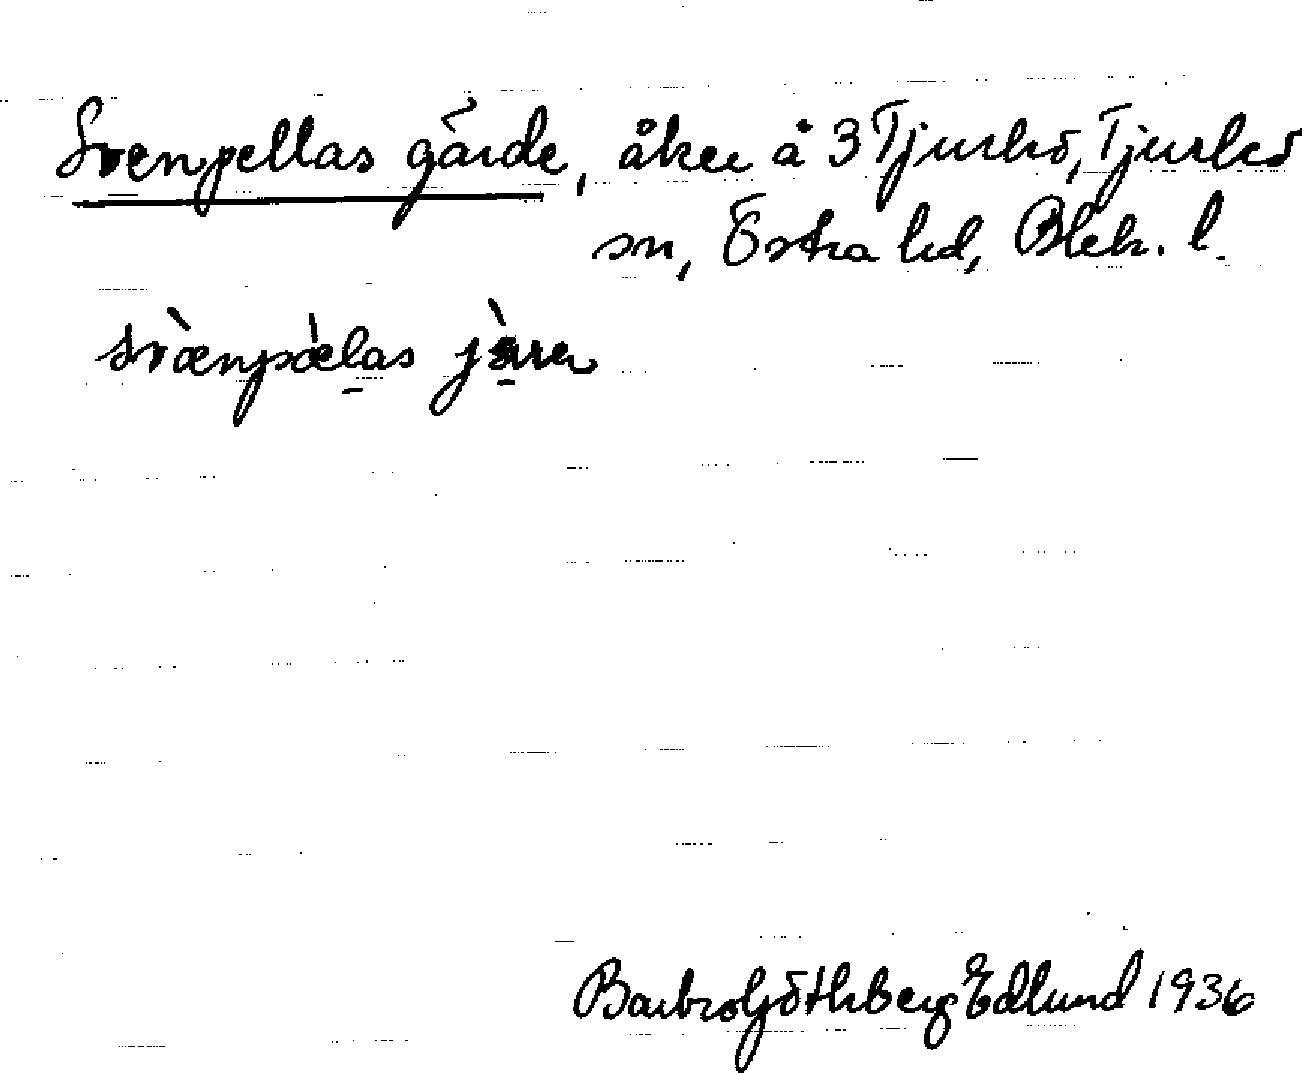 Svenpellas gärde, åker å 3 Tjurkö, Tjurkö
sn, Östra hd, Blek. l.
svæ̀npæ̀las
Barbro Göthberg Edlund 1936